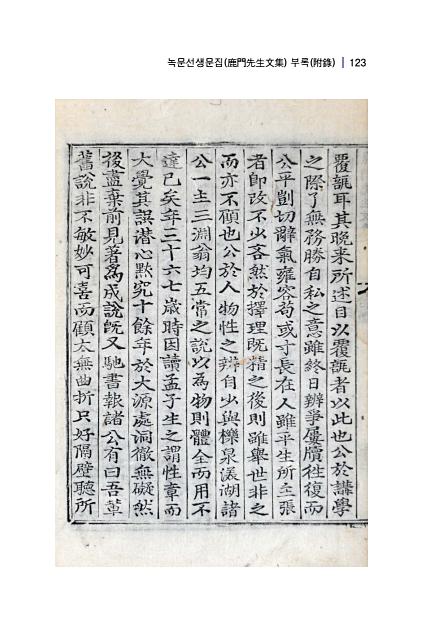 녹문선생문집(鹿門先生文集) 부록(附錄) | 123
覆瓿耳其晚来所述目以覆瓿者以此也公於講學
之際了無務勝自私之意雖終日辨爭屢牘往復而
公平剴切辭氣雍容苟或寸長在人雖平生所主張
者卽改不少吝然於擇理既精之後則雖舉世非之
而亦不顧也公於人物性之辨自少與櫟泉渼湖諸
公一主三淵翁均五常之說以為物則體全而用不
達已矣年三十六七歲時因讀孟子生之謂性章而
大覺其誤潜心黙究十餘年於大源處洞徹無礙然
後盡棄前見著為成說既又馳書報諸公有曰吾輩
舊說非不敏妙可喜而顧太無曲折只好隔壁聽所